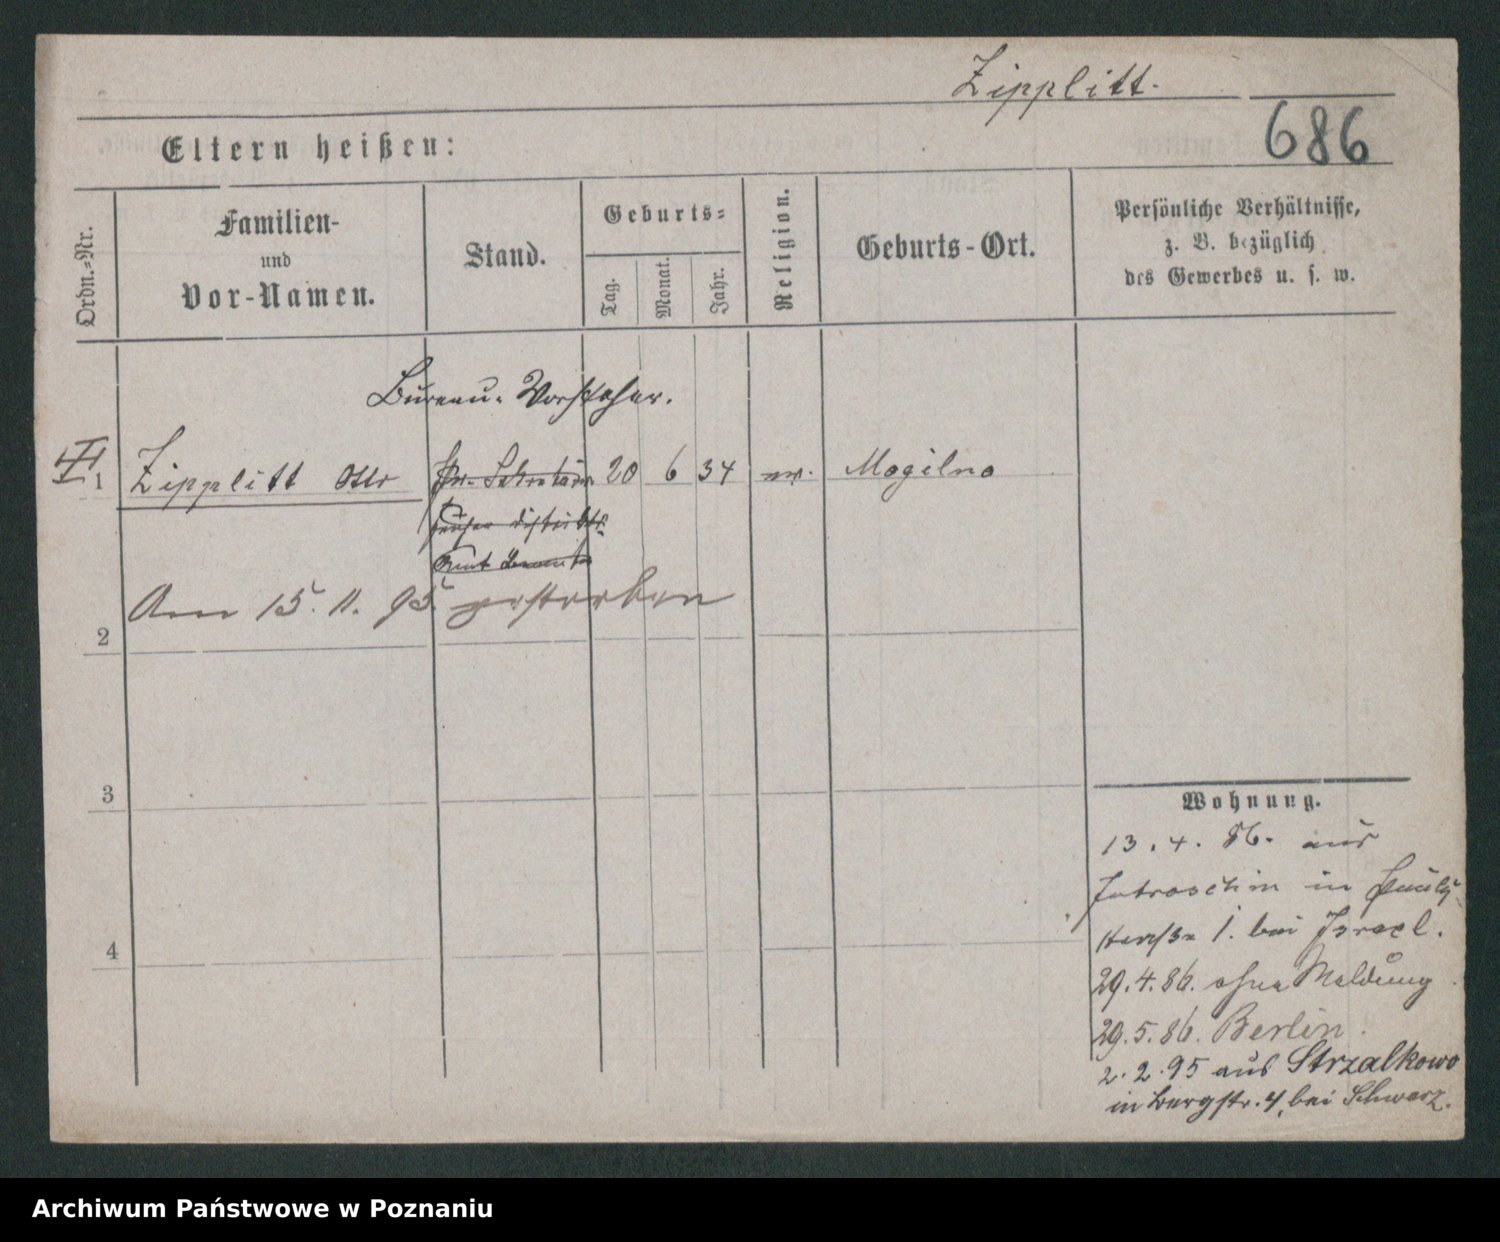 Zipplitt.
686
Eltern heißen:
Ordn.-Nr.
Familien-
und
Vor-Namen.
Stand.
Geburts-
Tag.
Monat.
Jahr.
Religion.
Geburts-Ort.
Persönliche Verhältnisse,
z. B. bezüglich
des Gewerbes u. s. w.
Bureau-Vorsteher.
1 Zipplitt Otto Pr. Sekretär 20 6 34 ev. Mogilno
früher Distrikts-
Amt
Am 15. 11. 95 gestorben
2
3
4
Wohnung.
13. 4. 86. aus
Jutroschin in Pauli
straße 1. bei Israel.
29. 4. 86. ohne Meldung
29. 5. 86. Berlin.
2. 2. 95 aus Strzalkowo
in Bergstr. 4, bei Schwarz.
Archiwum Państwowe w Poznaniu